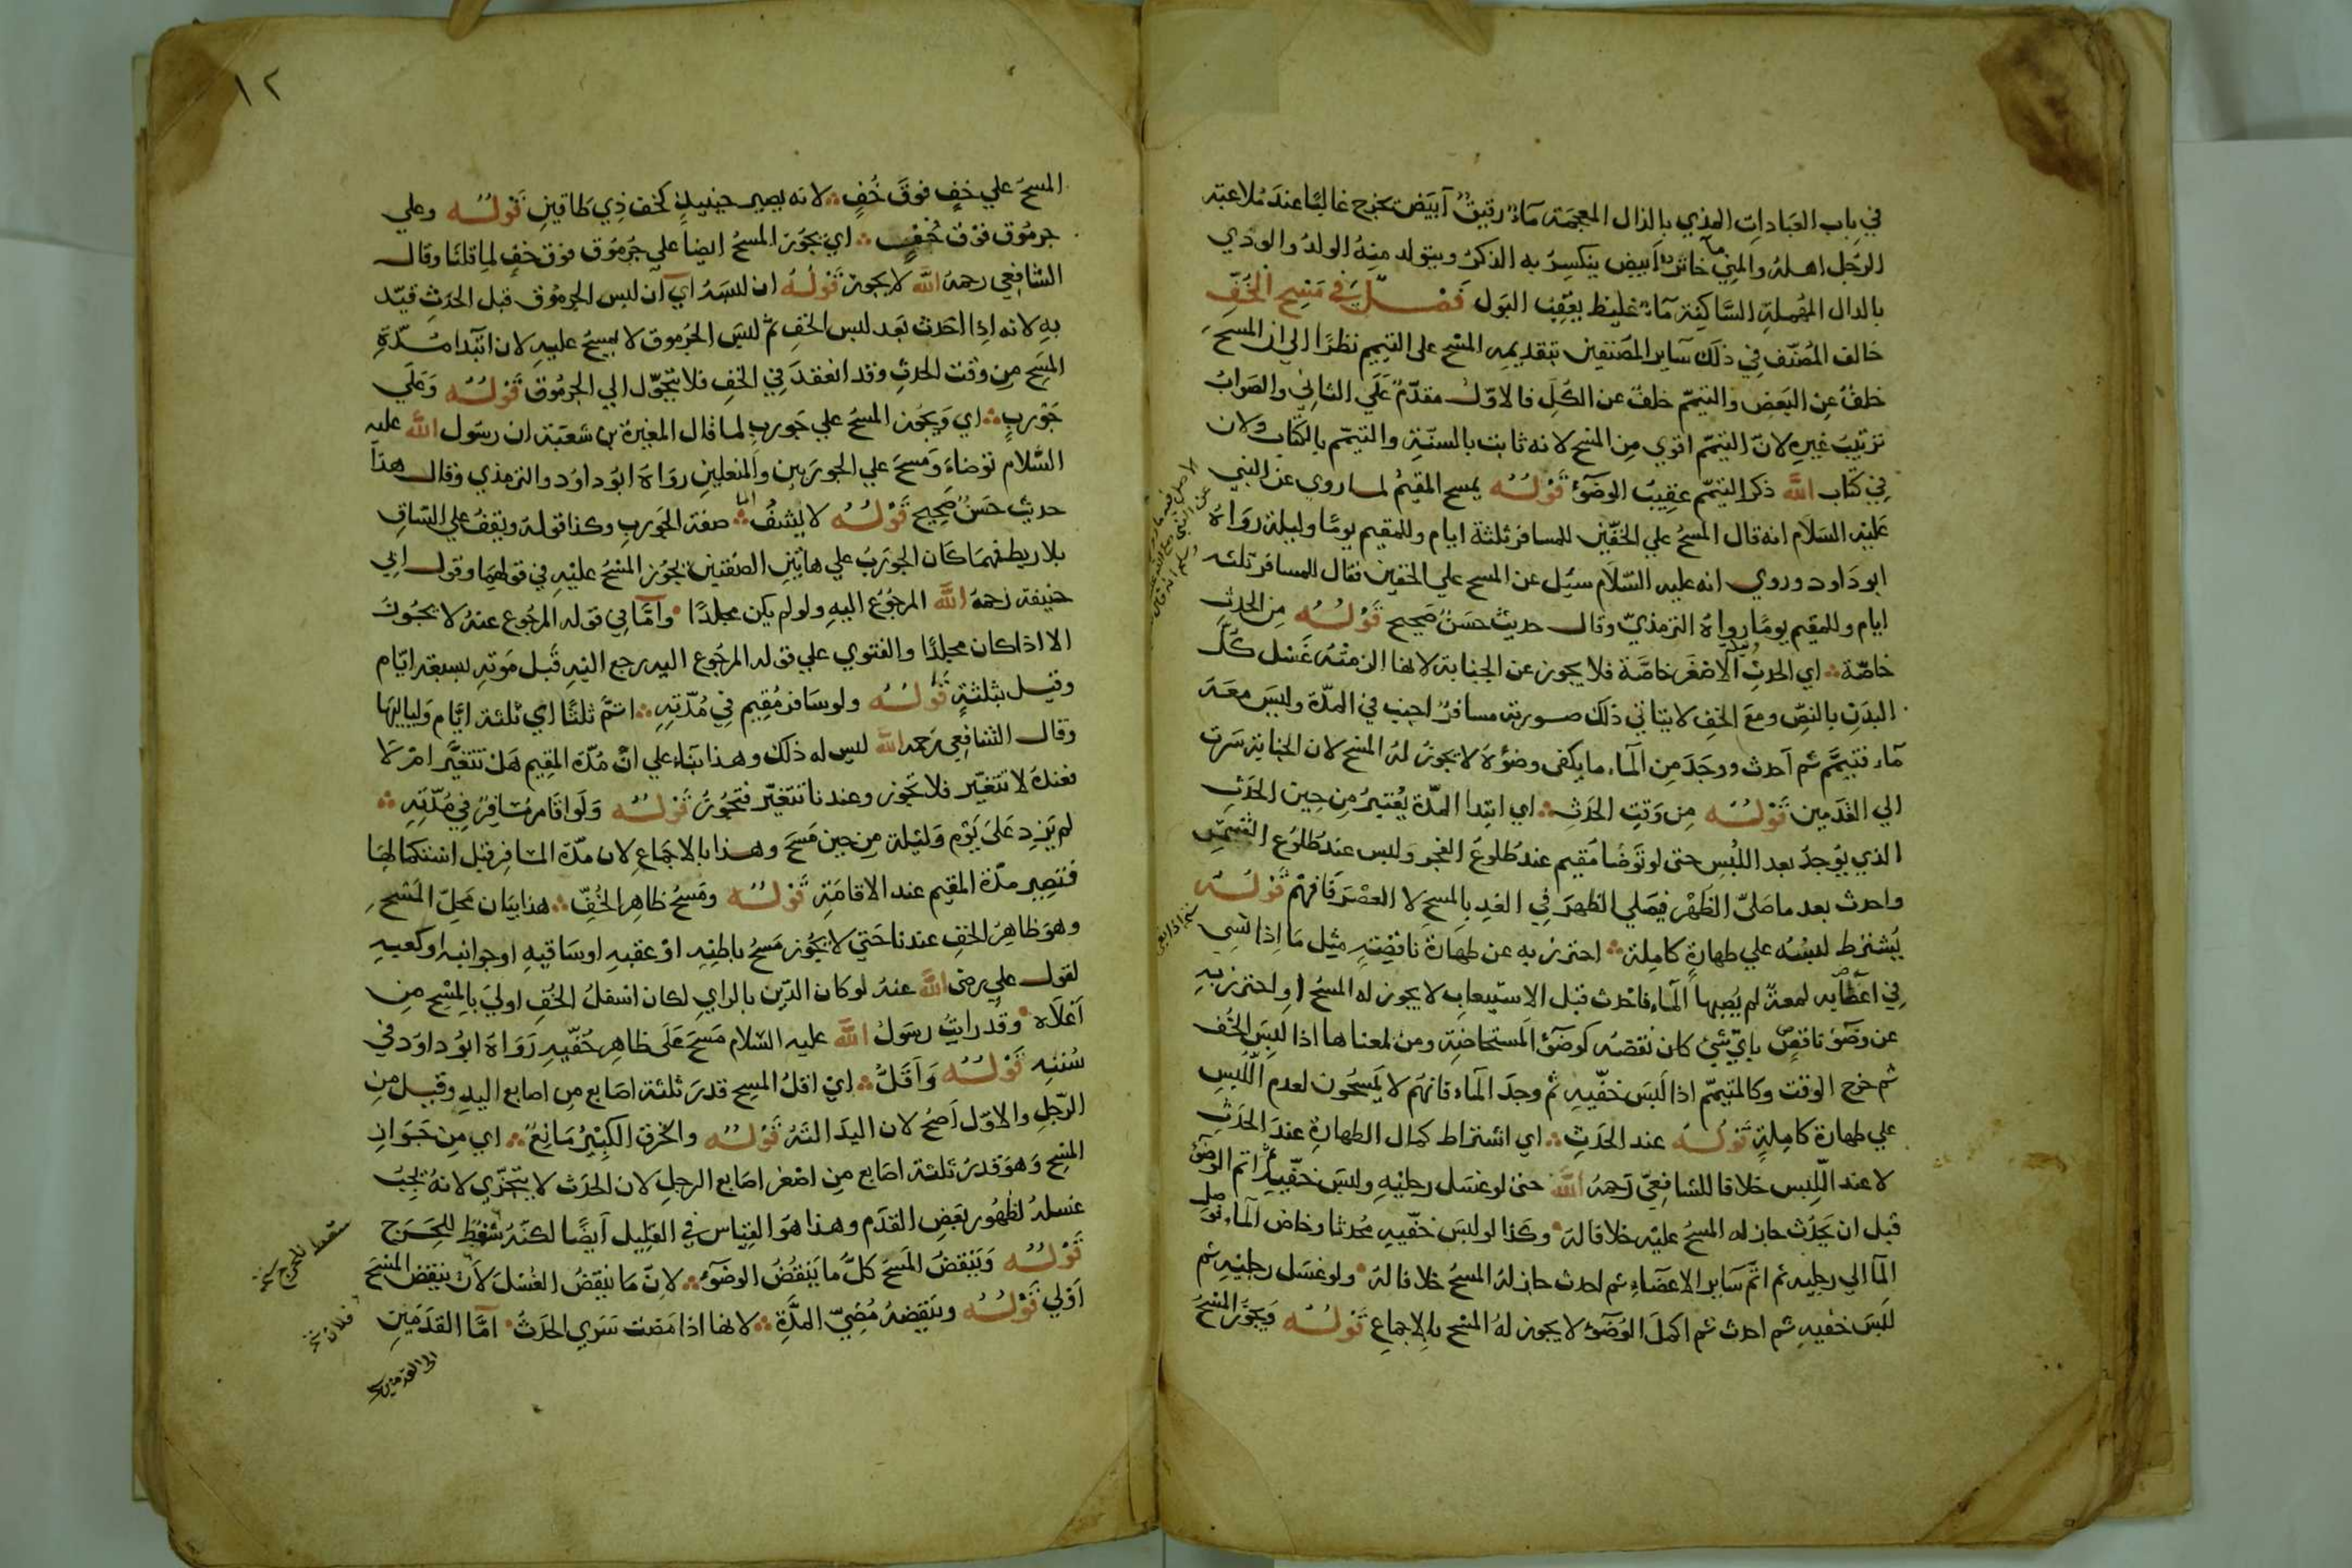 في باب العبادات المذي بالذال المعجمة ماء رقيق ابيض يخرج غالبا عند ملاعبة
الرجل اهله والمني ماء خاثر ابيض ينكسر به الذكر ويتولد منه الولد والودي
بالدال المهملة الساكنة ماء غليظ يعقب البول فصل في مسح الخف
خالف المصنف في ذلك ساير المصنفين بتقديمه المسح على التيمم نظرا الي ان المسح
خلف عن البعض والتيمم خلف عن الكل فالاول مقدم علي الثاني والصواب
ترتيب غيره لان التيمم اقوي من المسح لانه ثابت بالسنة والتيمم بالكتاب ولان
في كتاب الله ذكر التيمم عقيب الوضوء قوله يمسح المقيم لما روي عن النبي
عليه السلام انه قال المسح علي الخفين للمسافر ثلثة ايام وللمقيم يوما وليلة رواه
ابو داود وروي انه عليه السلام سيل عن المسح علي الخفين فقال للمسافر ثلثه
ايام وللمقيم يوما رواه الترمذي وقال حديث حسن صحيح قوله من الحدث
خاصة اي الحدث الاصغر خاصة فلا يجوز عن الجنابة لانها الزمته غسل كل
البدن بالنص ومع الخف لا يتاتي ذلك صورته مسافر اجنب في المدة وليس معه
ماء فتيمم ثم احدث ووجد من الماء ما يكفي وضوه لا يجوز له المسح لان الجنابة سرت
الي القدمين قوله من وقت الحدث اي ابتدا المدة يعتبر من حين الحدث
الذي يوجد بعد اللبس حتى لو توضا مقيم عند طلوع الفجر ولبس عند طلوع الشمس
واحدث بعد ما صلي الظهر فيصلي الظهر في الغد بالمسح لا العصر فافهم قوله
يشترط لبسه علي طهارة كاملة احترز به عن طهارة ناقصة مثل ما اذا نسي
في اعضايه لمعة لم يصبها الماء فاحدث قبل الاستيعاب لا يجوز له المسح او احترز به
عن وضوء ناقص باي شي كان نقصه كوضوء المستحاضة ومن بمعناها اذا لبس الخف
ثم خرج الوقت وكالمتيمم اذا لبس خفيه ثم وجد الماء فانهم لا يمسحون لعدم اللبس
علي طهارة كاملة قوله عند الحدث اي اشتراط كمال الطهارة عند الحدث
لا عند اللبس خلافا للشافعي رحمه الله حتى لو غسل رجليه ولبس خفيه ثم اتم الوضوء
قبل ان يحدث جاز له المسح عليه خلافا له وكذا لو لبس خفيه محدثا وخاض الماء فوصل
الماء الي رجليه ثم اتم ساير الاعضاء ثم احدث جاز له المسح خلافا له ولو غسل رجليه ثم
لبس خفيه ثم احدث ثم اكمل الوضوء لا يجوز له المسح بالاجماع قوله ويجوز المسح
١٢
المسح علي خف فوق خف لانه يصير حينيذ كخف ذي طاقين قوله وعلي
جرموق فوق خف اي يجوز المسح ايضا علي جرموق فوق خف لما قلنا وقال
الشافعي رحمه الله لا يجوز قوله ان لبسه اي ان لبس الجرموق قبل الحدث قيد
به لانه اذا احدث بعد لبس الخف ثم لبس الجرموق لا يمسح عليه لان ابتدا مدة
المسح من وقت الحدث وقد انعقد في الخف فلا يتحول الي الجرموق قوله وعلي
جورب اي ويجوز المسح علي جورب لما قال المغيرة بن شعبة ان رسول الله عليه
السلام توضاء ومسح علي الجوربين والمنعلين رواه ابو داود والترمذي وقال هذا
حديث حسن صحيح قوله لا يشف الماء صفة الجورب وكذا قوله ويقف علي الساق
بلا ربط فمهما كان الجورب علي هاتين الصفتين يجوز المسح عليه في قولهما وقول ابي
حنيفة رحمه الله المرجوع اليه ولو لم يكن مجلدا واما في قوله المرجوع عنه لا يجوز
الا اذا كان مجلدا والفتوي علي قوله المرجوع اليه رجع اليه قبل موته بسبعة ايام
وقيل بثلثة قوله ولو سافر مقيم في مدته اتم ثلثا اي ثلثة ايام ولياليها
وقال الشافعي رحمه الله ليس له ذلك وهذا بناء علي ان مدة المقيم هل تتغير ام لا
فعنده لا تتغير فلا تجوز وعندنا تتغير فتجوز قوله ولو اقام مسافر في مدته
لم يزد على يوم وليلة من حين مسح وهذا بالاجماع لان مدة المسافر قبل استكمالها
فتصير مدة المقيم عند الاقامة قوله ومسح ظاهر الخف هذا بيان محل المسح
وهو ظاهر الخف عندنا حتي لا يجوز مسح باطنه او عقبه او ساقيه او جوانبه او كعبيه
لقول علي رضي الله عنه لو كان الدين بالراي لكان اسفل الخف اولي بالمسح من
اعلاه وقد رايت رسول الله عليه السلام مسح على ظاهر خفيه رواه ابو داود في
سننه قوله واقل اي اقل المسح قدر ثلثة اصابع من اصابع اليد وقيل من
الرجل والاول اصح لان اليد الته قوله والخرق الكبير مانع اي من جواز
المسح وهو قدر ثلثة اصابع من اصغر اصابع الرجل لان الحدث لا يتجزي لانه يجب
غسله لظهور بعض القدم وهذا هو القياس في القليل ايضا لكنه سقط للحرج
قوله وينقض المسح كل ما ينقض الوضوء لان ما ينقض الغسل لان ينقض المسح
اولي قوله وينقضه مضي المدة لانها اذا مضت سري الحدث اما القدمين
سقط للحرج نخ
فلان نخ
الى القدمين